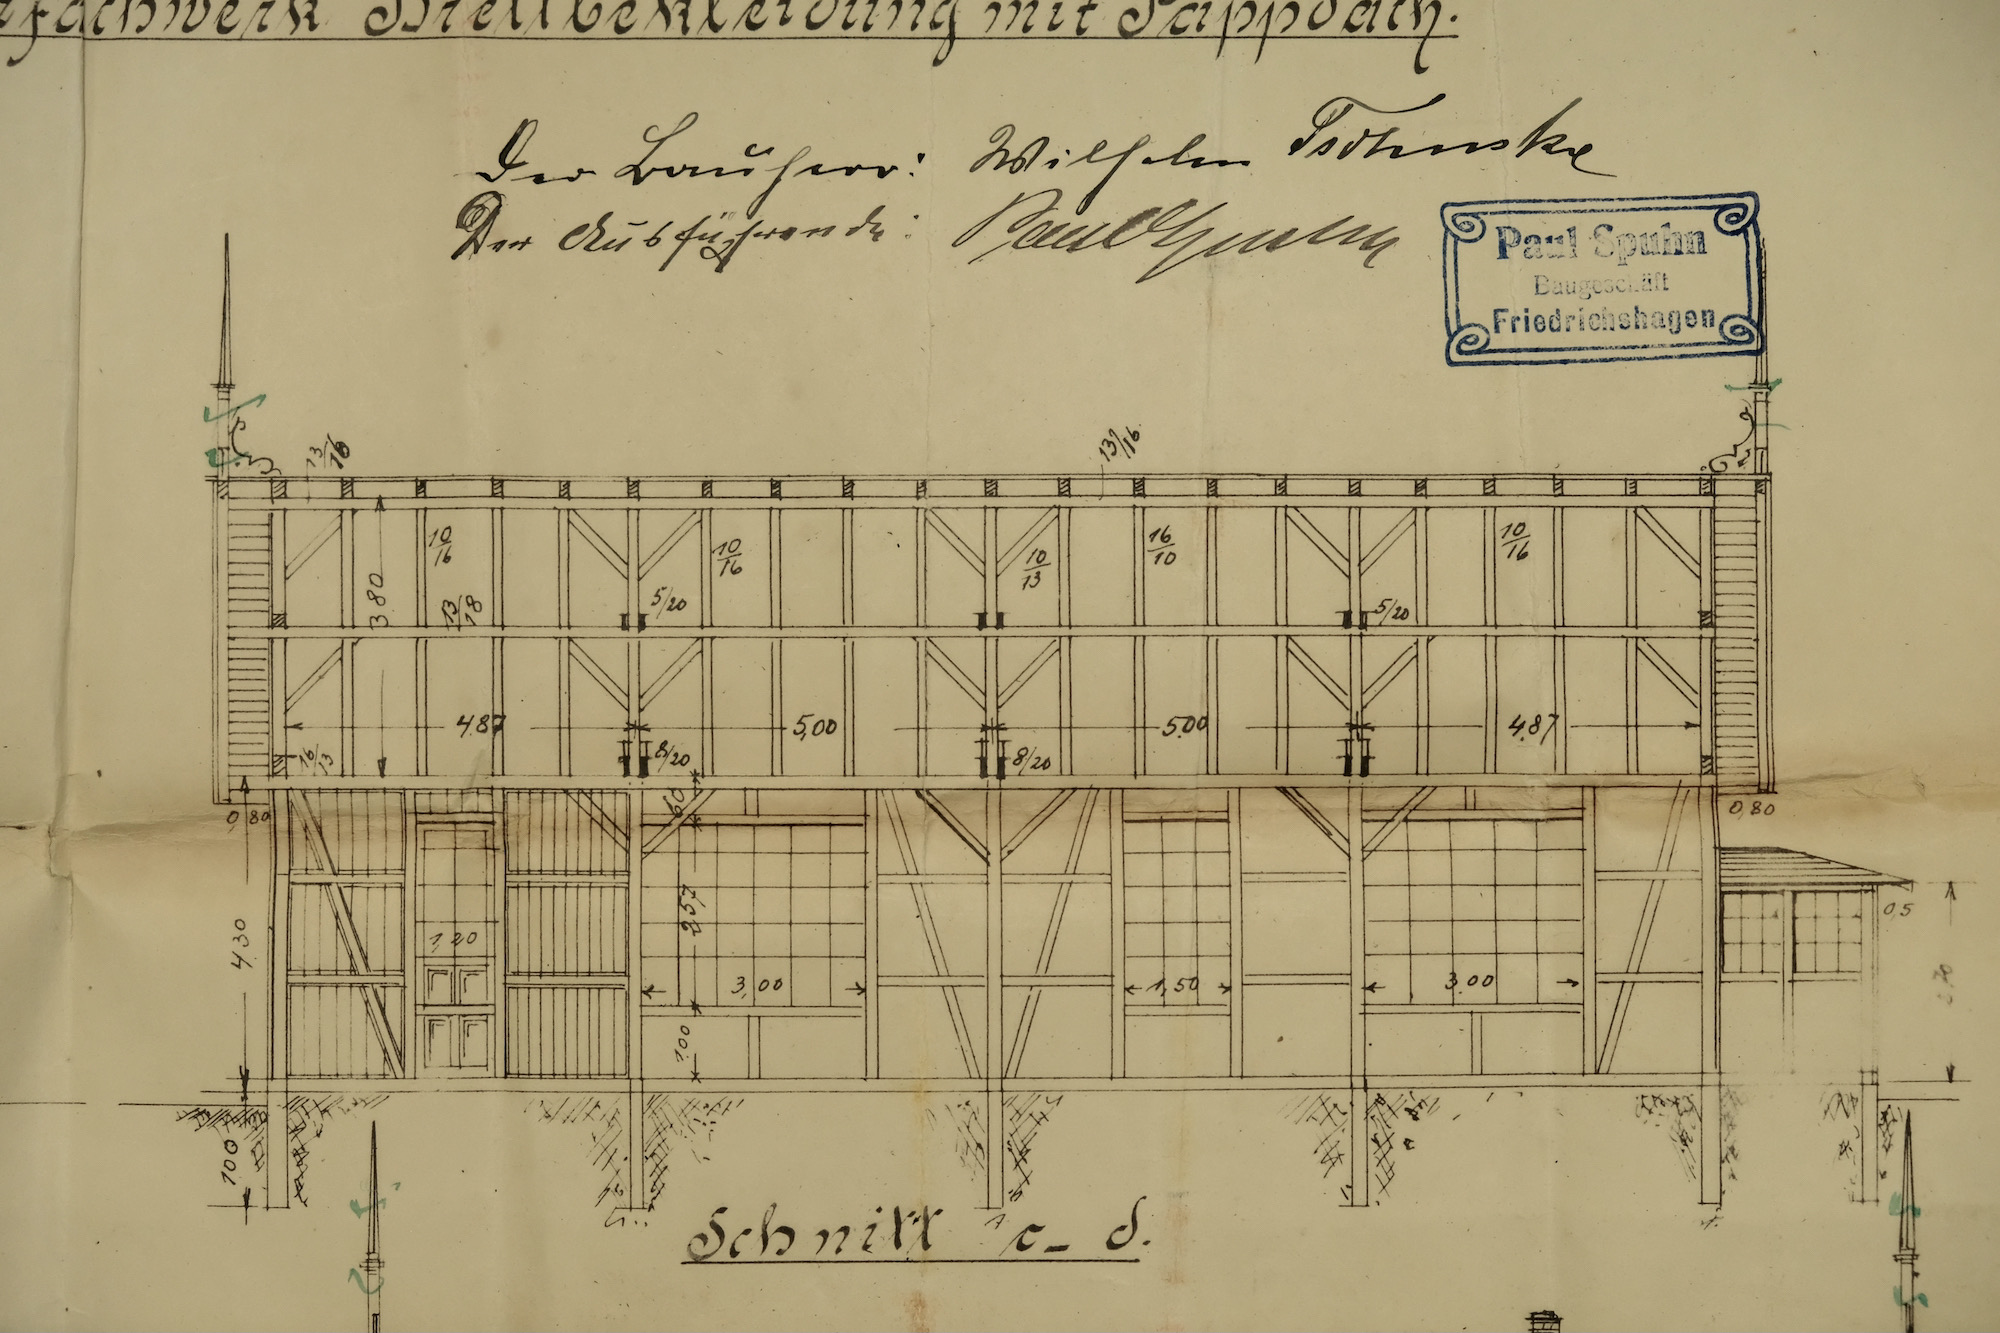 Brettbekleidung mit Pappdach.
Der Bauherr: Wilhelm
Der Ausführende: Paul Spuhn
Paul Spuhn
Baugeschäft
Friedrichshagen
13/16
13/16
10/16
10/16
10/13
16/10
10/16
3,80
13/18
5/20
5/20
4,87
5,00
5,00
4,87
16/13
8/20
8/20
0,80
60
0,80
4,30
1,20
2,57
3,00
1,50
3,00
0,5
1,00
1,00
Schnitt c-d.